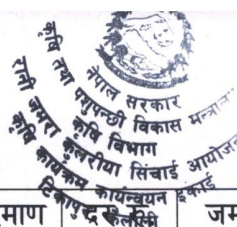 नेपाल सरकार
कृषि तथा पशुपन्छी विकास मन्त्रालय
कृषि विभाग
रानी जमरा कुलरीया सिंचाई आयोजना
कृषि कार्यक्रम कार्यन्वयन इकाई
टिकापुर कैलाली
माण
जम